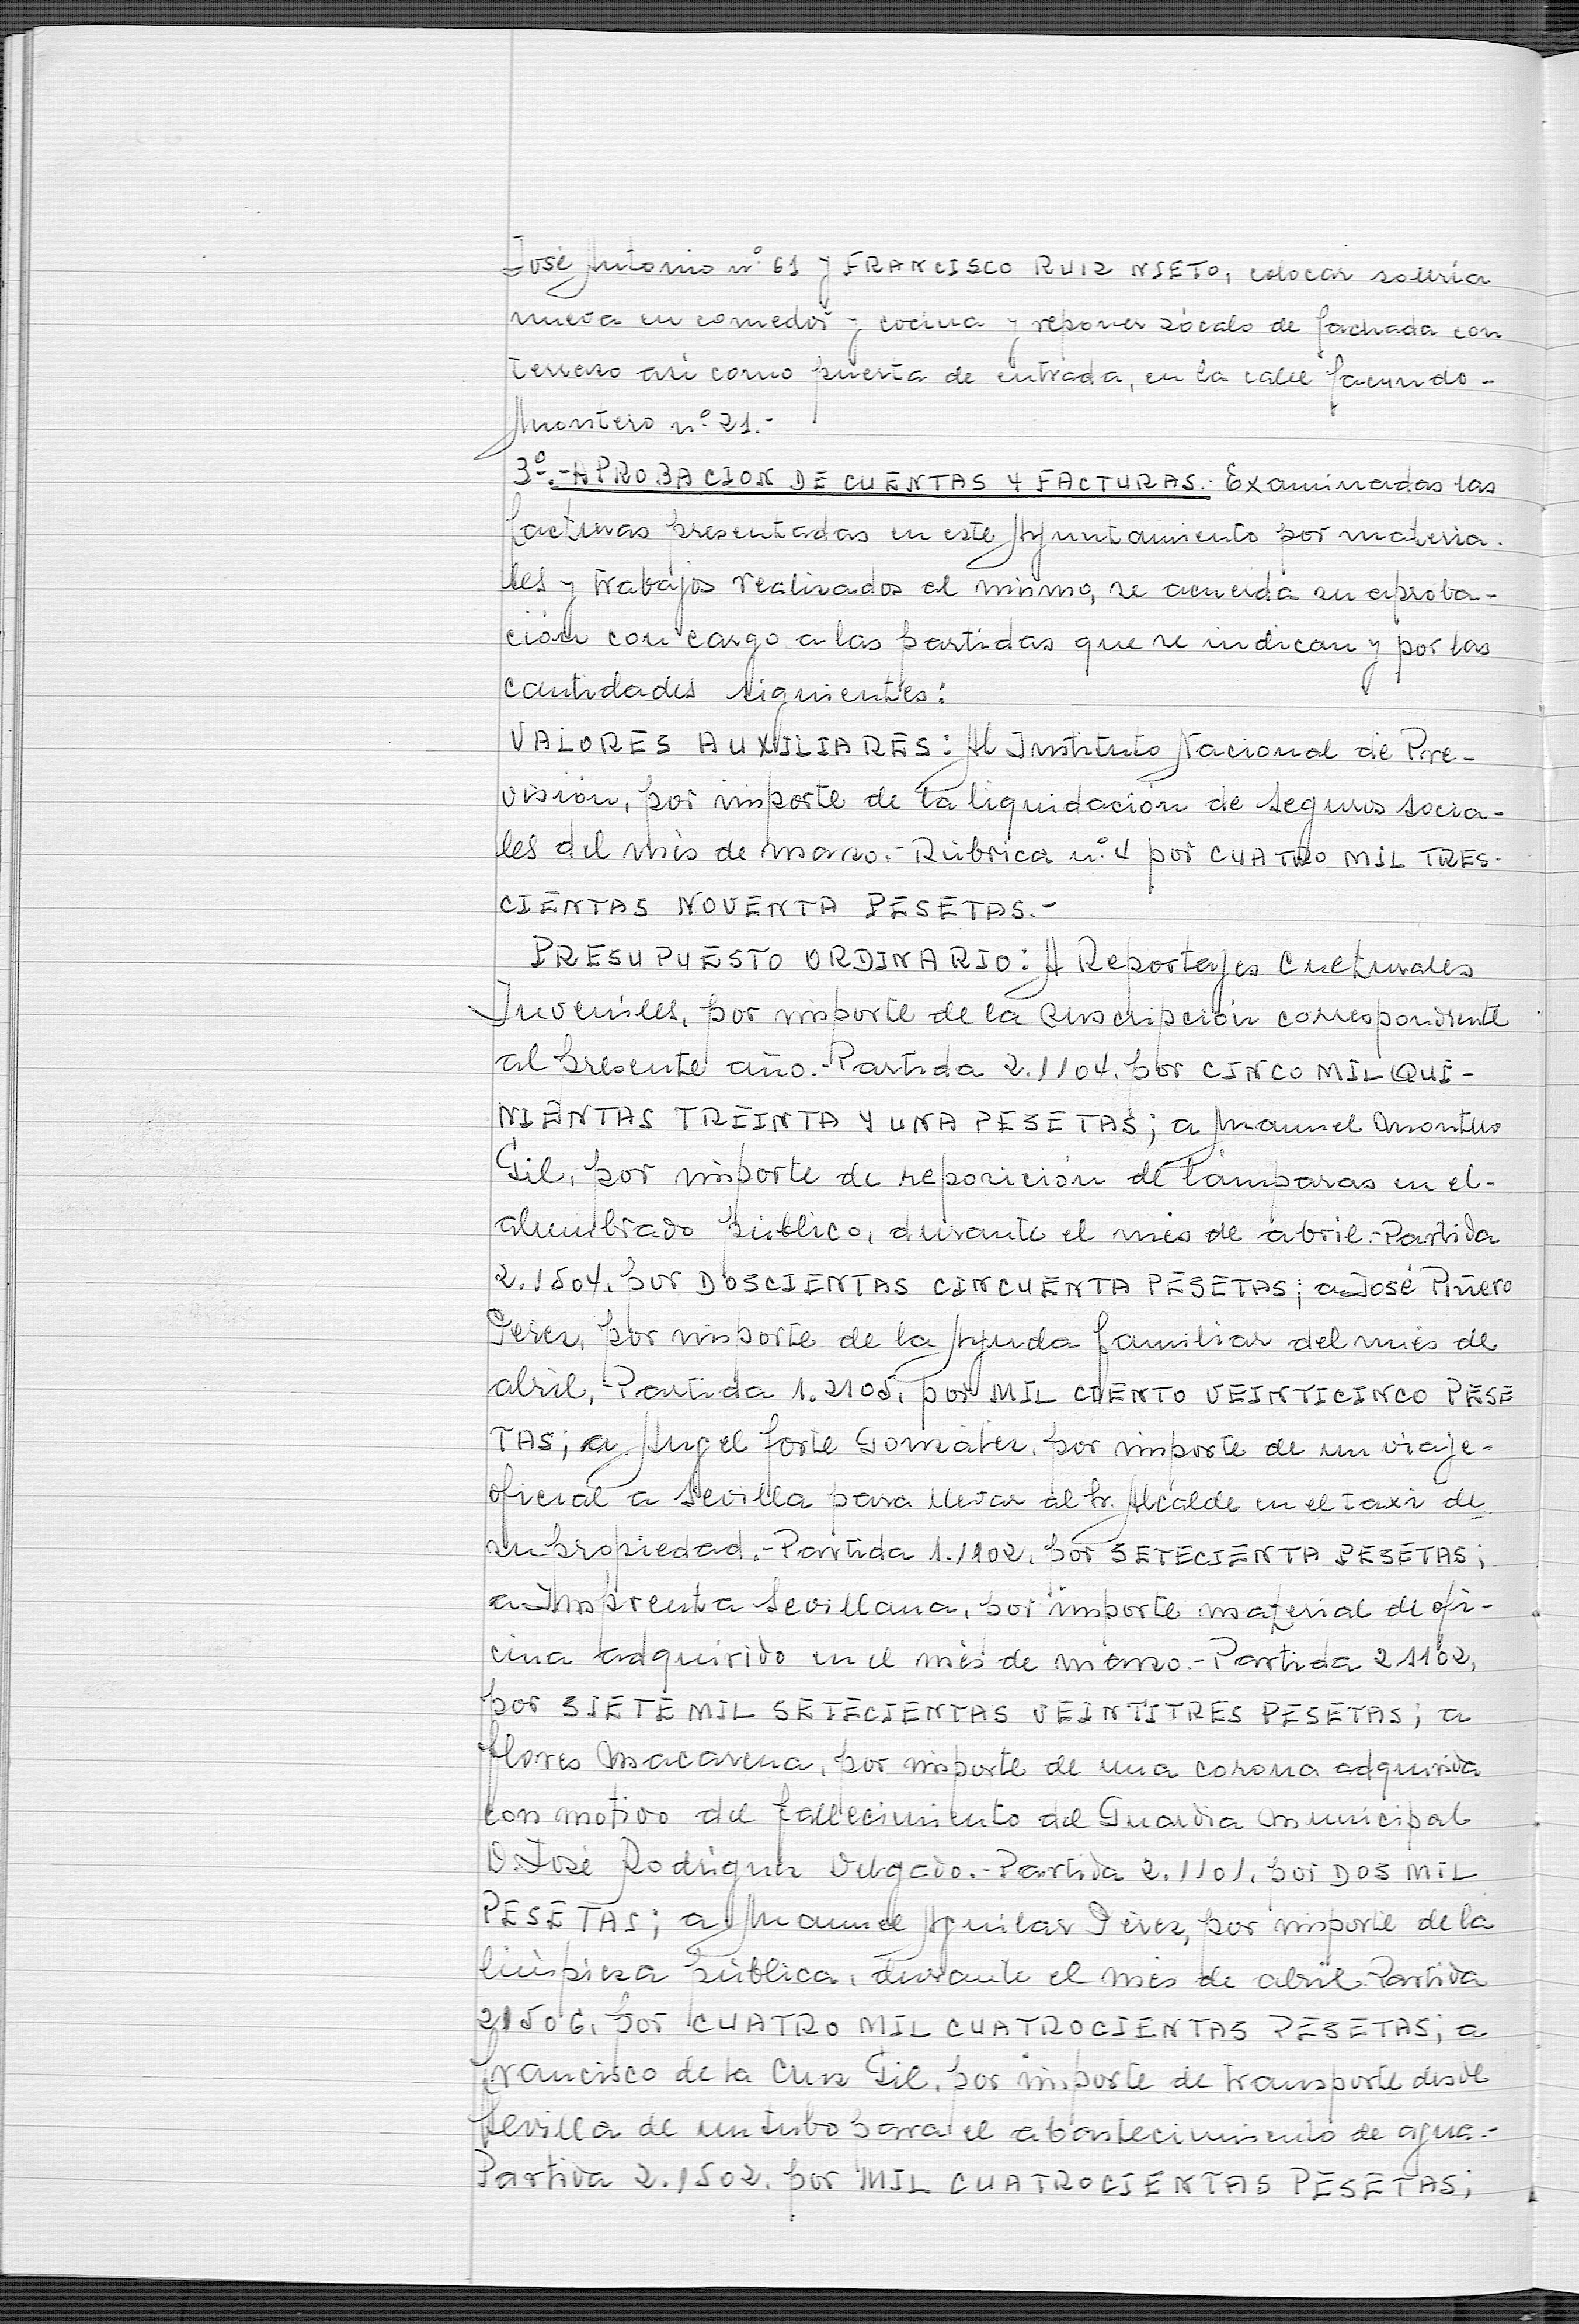 José Antonio nº 61 y FRANCISCO RUIZ NIETO, colocar solería
nueva en comedor y cocina y reponer zócalo de fachada con
terrazo así como puerta de entrada, en la calle Facundo-
Montero nº 21.-
3º.-APROBACION DE CUENTAS Y FACTURAS.- Examinadas las
facturas presentadas en este Ayuntamiento por materia-
les y trabajos realizados al mismo, se acuerda su aproba-
ción con cargo a las partidas que se indican y por las
cantidades siguientes:
VALORES AUXILIARES: Al Instituto Nacional de Pre-
visión, por importe de la liquidación de seguros socia-
les del mes de marzo.- Rúbrica nº 4 por CUATRO MIL TRES-
CIENTAS NOVENTA PESETAS.-
PRESUPUESTO ORDINARIO: A Reportajes Culturales
Juveniles, por importe de la suscripción correspondiente
al presente año.- Partida 2.1104, por CINCO MIL QUI-
NIENTAS TREINTA Y UNA PESETAS; a Manuel Montero
Gil, por importe de reposición de lámparas en el-
alumbrado público, durante el mes de abril.- Partida
2.1504, por DOSCIENTAS CINCUENTA PESETAS; a José Piñero
Pérez, por importe de la Ayuda familiar del mes de
abril,- Partida 1.2105, por MIL CIENTO VEINTICINCO PESE
TAS; a Angel Forte González, por importe de un viaje-
oficial a Sevilla para llevar al Sr. Alcalde en el taxi de
su propiedad.- Partida 1.1102, por SETECIENTA PESETAS;
a Imprenta Sevillana, por importe material de ofi-
cina adquirido en el mes de marzo.- Partida 21102,
por SIETE MIL SETECIENTAS VEINTITRES PESETAS; a
Flores Macarena, por importe de una corona adquirida
con motivo del fallecimiento del Guardia Municipal
D. José Rodríguez Delgado.- Partida 2.1101, por DOS MIL
PESETAS; a Manuel Aguilar Pérez, por importe de la
limpieza pública, durante el mes de abril. Partida
21506, por CUATRO MIL CUATROCIENTAS PESETAS; a
Francisco de la Cruz Gil, por importe de transporte desde
Sevilla de un tubo para el abastecimiento de agua.-
Partida 2.1502, por MIL CUATROCIENTAS PESETAS;